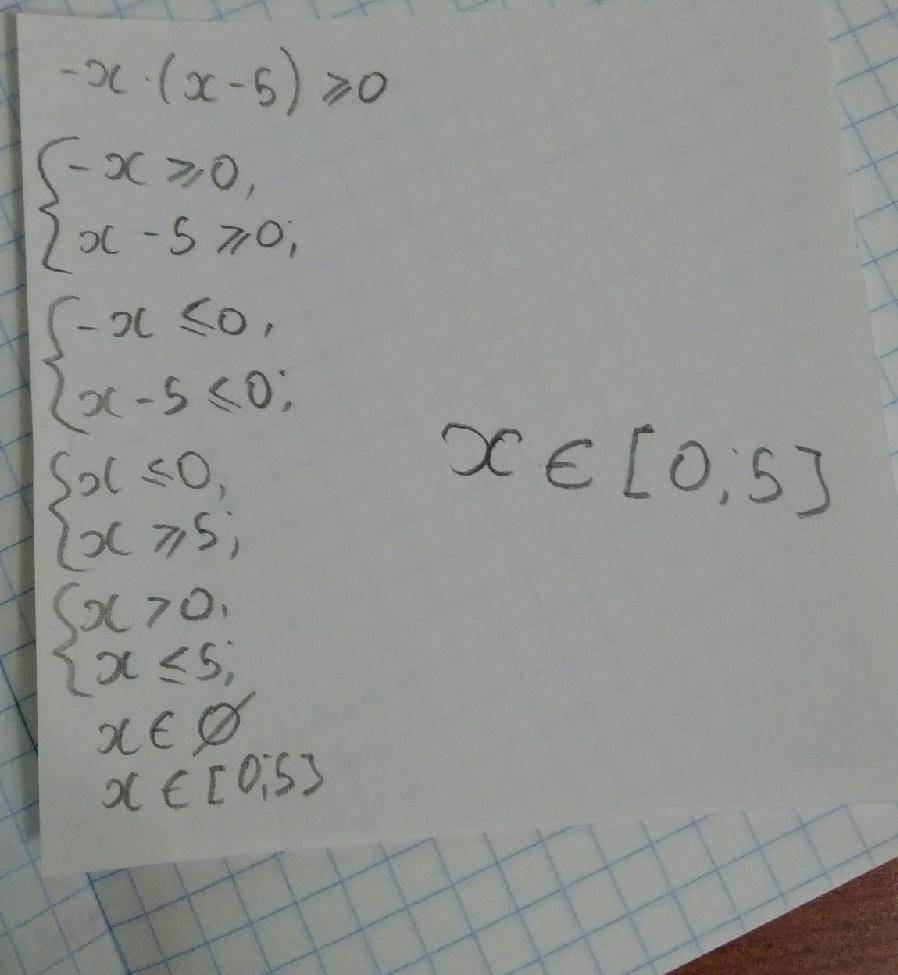 -x·(x-5)⩾0
{-x⩾0,
x-5⩾0;
{-x≤0,
x-5≤0;
{x≤0,
x⩾5;
{x>0,
x≤5;
x∈∅
x∈[0;5]
x∈[0;5]